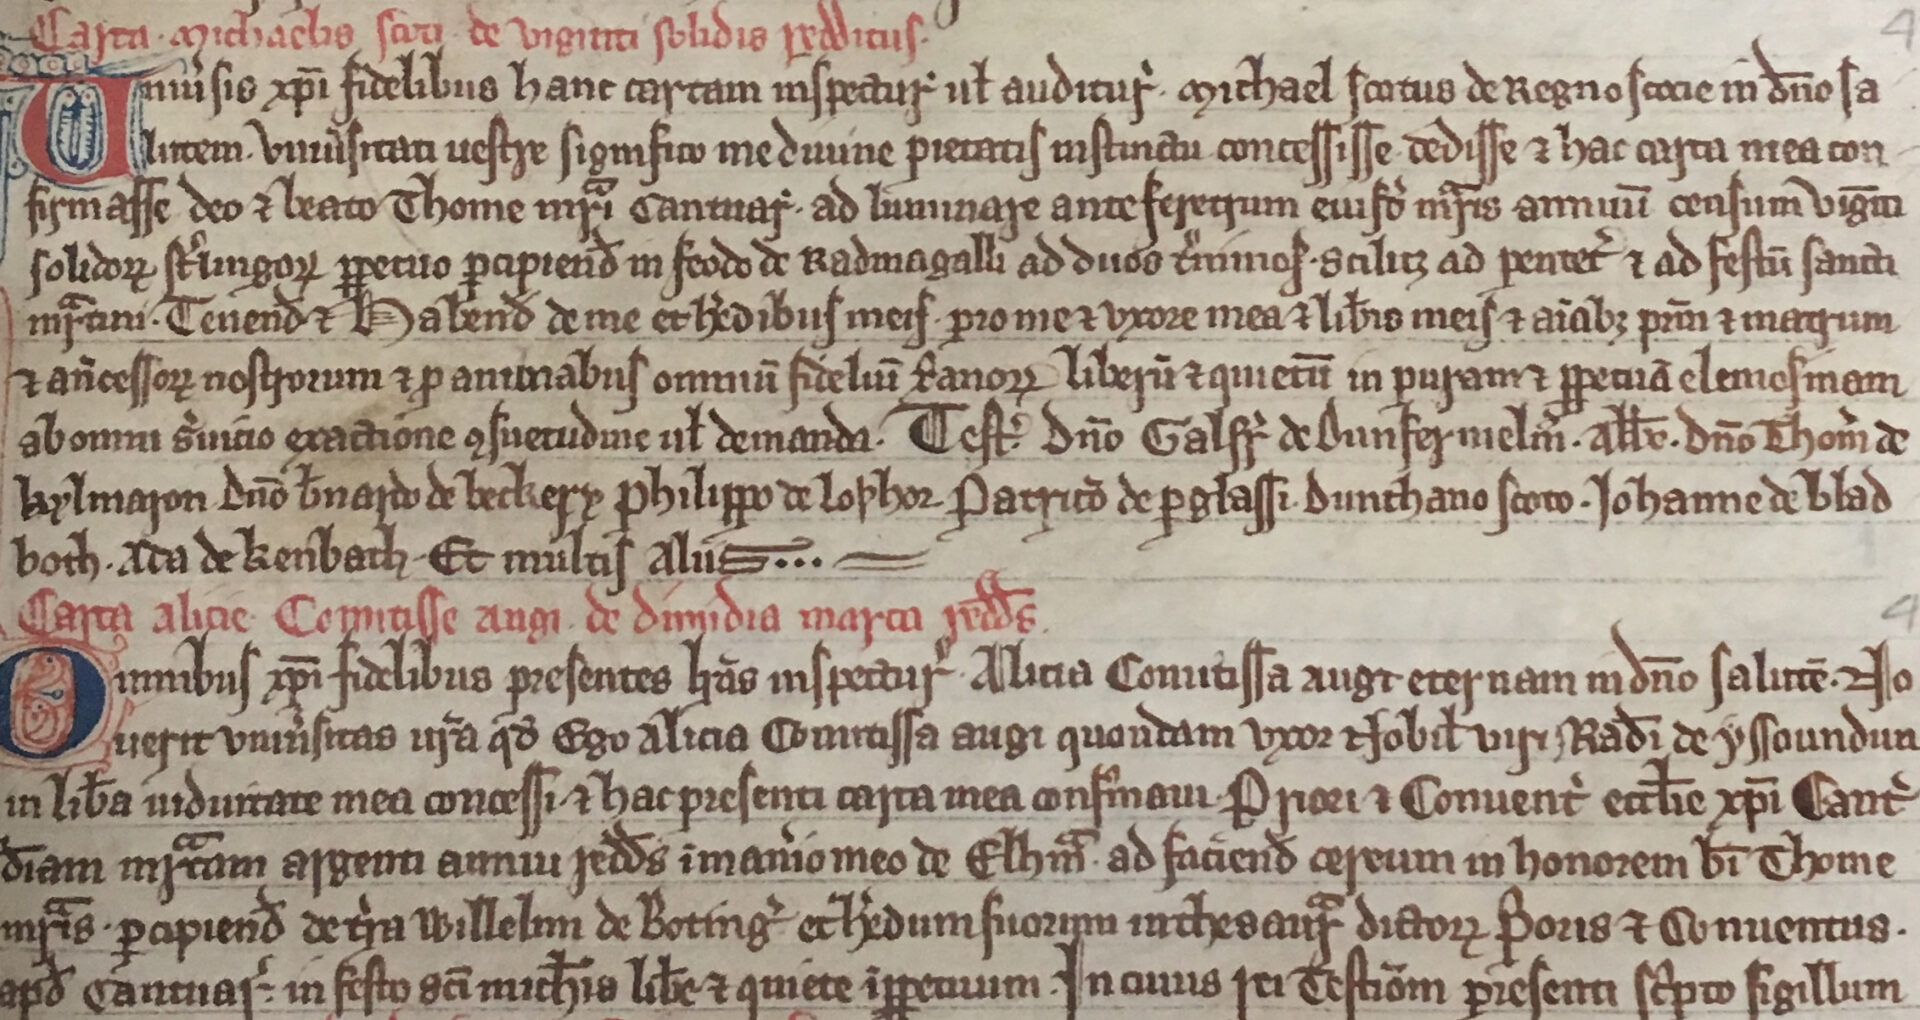 Carta Michaelis scoti de viginti solidis redditus.
Uniu'sis xp̄i fidelibus hanc cartam inspectur' ul' auditur'. Michael scotus de Regno scocie in dn̄o sa
lutem. Vniu'sitati uestre significo me diuine pietatis instinctu concessisse dedisse ⁊ hac carta mea con
firmasse deo ⁊ beato Thome mr̄i Cantuar'. ad luminare ante feretrum eiusd' mr̄is annuū censum viginti
solidoꝝ st'lingoꝝ ꝑpetuo ꝑcipiend' in feodo de Radmagalli ad duos t'minos. scilicꝫ ad pentec' ⁊ ad festū sancti
mr̄tini. Tenend' ⁊ Habend' de me et h'edibus meis. pro me ⁊ vxore mea ⁊ lib'is meis ⁊ aīabꝫ prm̄ ⁊ matrum
⁊ an̄cessoꝝ nostrorum ⁊ ꝑ animabus omniū fideliū x'anoꝝ liberū ⁊ quietū in puram ⁊ ꝑpetuā elemosinam
ab omni s'uicio exactione ꝯsuetudine ul' demanda. Test'. Dn̄o Galfr' de Dunfermelin'. Abb'e. Dn̄o Thom' de
kylmaron Dn̄o b'nardo de beckery Philippo de lophor Patricio de ꝑglassi. Dunchano scoto. Johanne de blad
both. Ada de kenbach. Et multis Aliis...
Carta alicie Comitisse augi. de dimidia marca redd's.
Omnibus xp̄i fidelibus presentes lr̄as inspectur'. Alicia Comitissa augi eternam in dn̄o salutē. No
uerit vniu'sitas ur̄a qd' Ego Alicia Comitissa augi quondam vxor Nobil' viri Rad'i de yssoundun
in lib'a uiduitate mea concessi. ⁊ hac presenti carta mea conf'maui. Priori ⁊ Conuent' eccl'ie xp̄i Cant'
dīam mr̄cam argenti annui redd's ī man'io meo de Elhm̄. ad faciend' cereum in honorem bī Thome
mr̄is. ꝑcipiend' de t'ra Willelmi de Boting' et h'edum suorum in thesaur' dictoꝝ P'oris ⁊ Conuentus.
apd' Cantuar'. in festo sc̄i mich'is lib'e ⁊ quiete īꝑpetuum. In cuius rei Testiom̄ presenti sc'pto sigillum